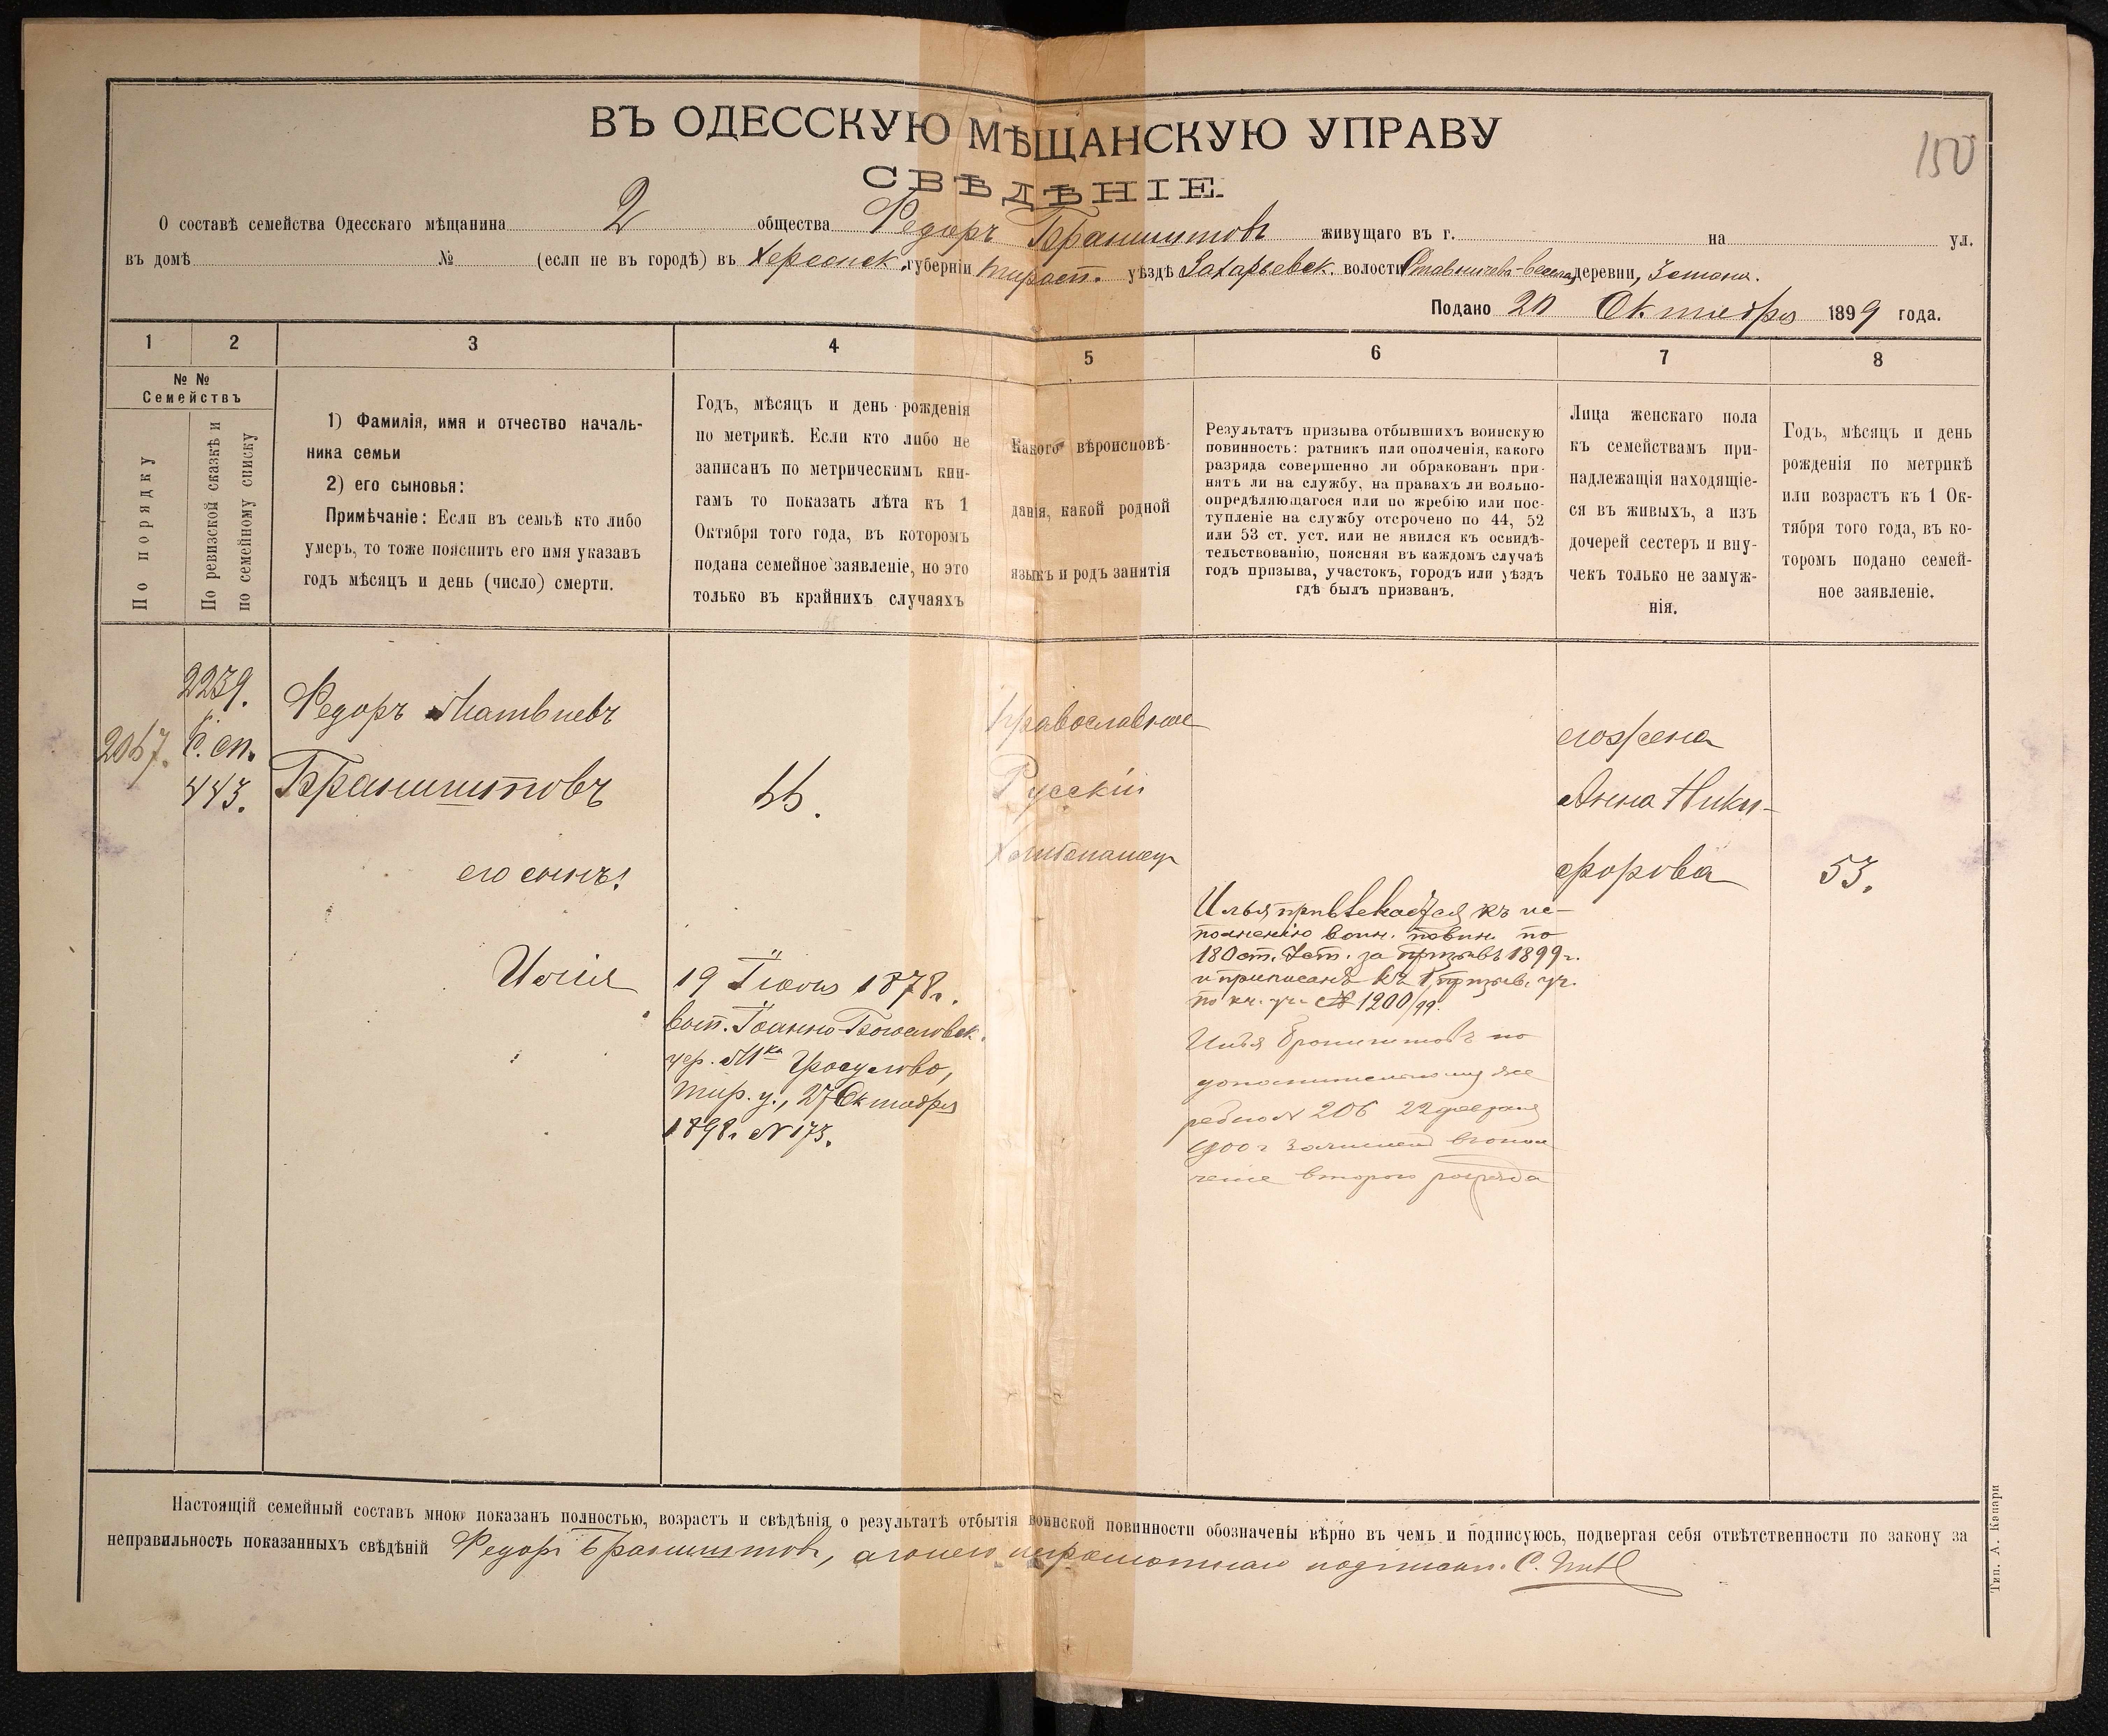 150
ВЪ ОДЕССКУЮ МѢЩАНСКУЮ УПРАВУ
СВѢДѢНІЕ
О составѣ семейства Одесскаго мѣщанина 2 общества Федоръ Бранишновъ живущаго въ г. на ул.
въ домѣ № (если не въ городѣ) въ Херсонск. губерніи Тирасп. уѣздѣ Захарьевск. волости деревни,
Подано 20 Октября 1899 года.
1 2 3 4 5 6 7 8
№ № Семействъ
По порядку
По ревизской сказкѣ и
по семейному списку
1) Фамилія, имя и отчество началь-
ника семьи
2) его сыновья:
Примѣчаніе: Если въ семьѣ кто либо
умеръ, то тоже пояснить его имя указавъ
годъ мѣсяцъ и день (число) смерти.
Годъ, мѣсяцъ и день рожденія
по метрикѣ. Если кто либо не
записанъ по метрическимъ кни-
гамъ то показать лѣта къ 1
Октября того года, въ которомъ
подана семейное заявленіе, но это
только въ крайнихъ случаяхъ
Какого вѣроисповѣ-
данія, какой родной
языкъ и родъ занятія
Результатъ призыва отбывшихъ воинскую
повинность: ратникъ или ополченія, какого
разряда совершенно ли обракованъ при-
нятъ ли на службу, на правахъ ли вольно-
опредѣляющагося или по жребію или пос-
тупленіе на службу отсрочено по 44, 52
или 53 ст. уст. или не явился къ освидѣ-
тельствованію, поясняя въ каждомъ случаѣ
годъ призыва, участокъ, городъ или уѣздъ
гдѣ былъ призванъ.
Лица женскаго пола
къ семействамъ при-
надлежащія находящіе-
ся въ живыхъ, а изъ
дочерей сестеръ и вну-
чекъ только не замуж-
нія.
Годъ, мѣсяцъ и день
рожденія по метрикѣ
или возрастъ къ 1 Ок-
тября того года, въ ко-
торомъ подано семей-
ное заявленіе.
2239.
2067.
С. сп.
443.
Федоръ Матвѣевъ
Бранишновъ
его сынъ:
Илія
19 Іюля 1878 г.
Іоанно-Богословск.
цер. М-ка Гросулово,
Тир. у., 27 Октября
1898 г. № 173.
Православное
Русскій
Хлѣбопашец
Илья привлекается къ ис-
полненію воин. повин. по
180 ст. Уст. за призывъ 1899 г.
и приписанъ къ 1 призыв. уч.
по кн. уч. № 1200/99.
Илья Бранишновъ по
дополнительному же
ребію № 206 22 февраля
1900 г зачислен в опол
чение второго разряда
его жена
Анна Ники-
форова
53.
Настоящій семейный составъ мною показанъ полностью, возрастъ и свѣдѣнія о результатѣ отбытія воинской повинности обозначены вѣрно въ чемъ и подписуюсь, подвергая себя отвѣтственности по закону за
неправильность показанныхъ свѣдѣній Федоръ Бранишновъ, а за него неграмотнаго подписал.
Тип. А. Качари